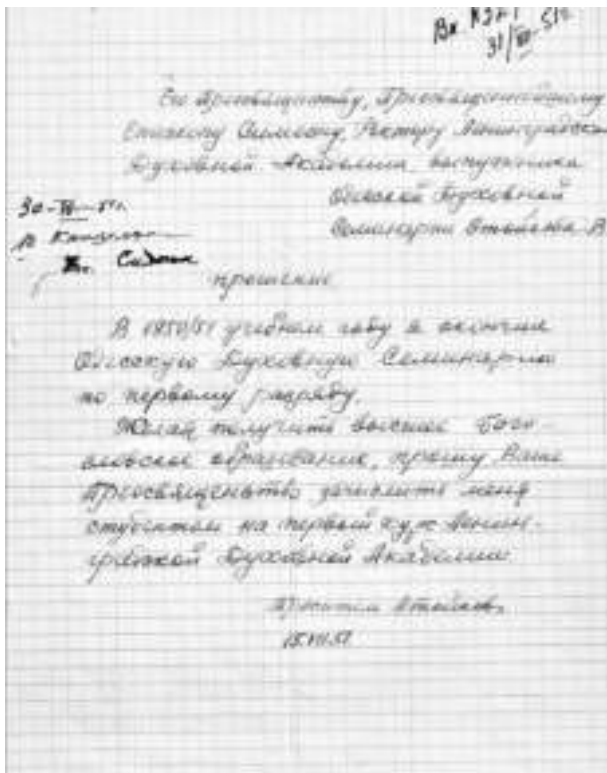 Вх. №
31/
Его Преосвященству, Преосвященнейшему
Епископу Симеону, Ректору Ленинградской
Духовной Академии выпускника
Одесской Духовной
Семинарии
прошение
В 1950/51 учебном году я окончил
Одесскую Духовную Семинарию
по первому разряду.
Желая получить высшее бого-
словское образование, прошу Ваше
Преосвященство зачислить меня
студентом на первый курс Ленин-
градской Духовной Академии
Проситель